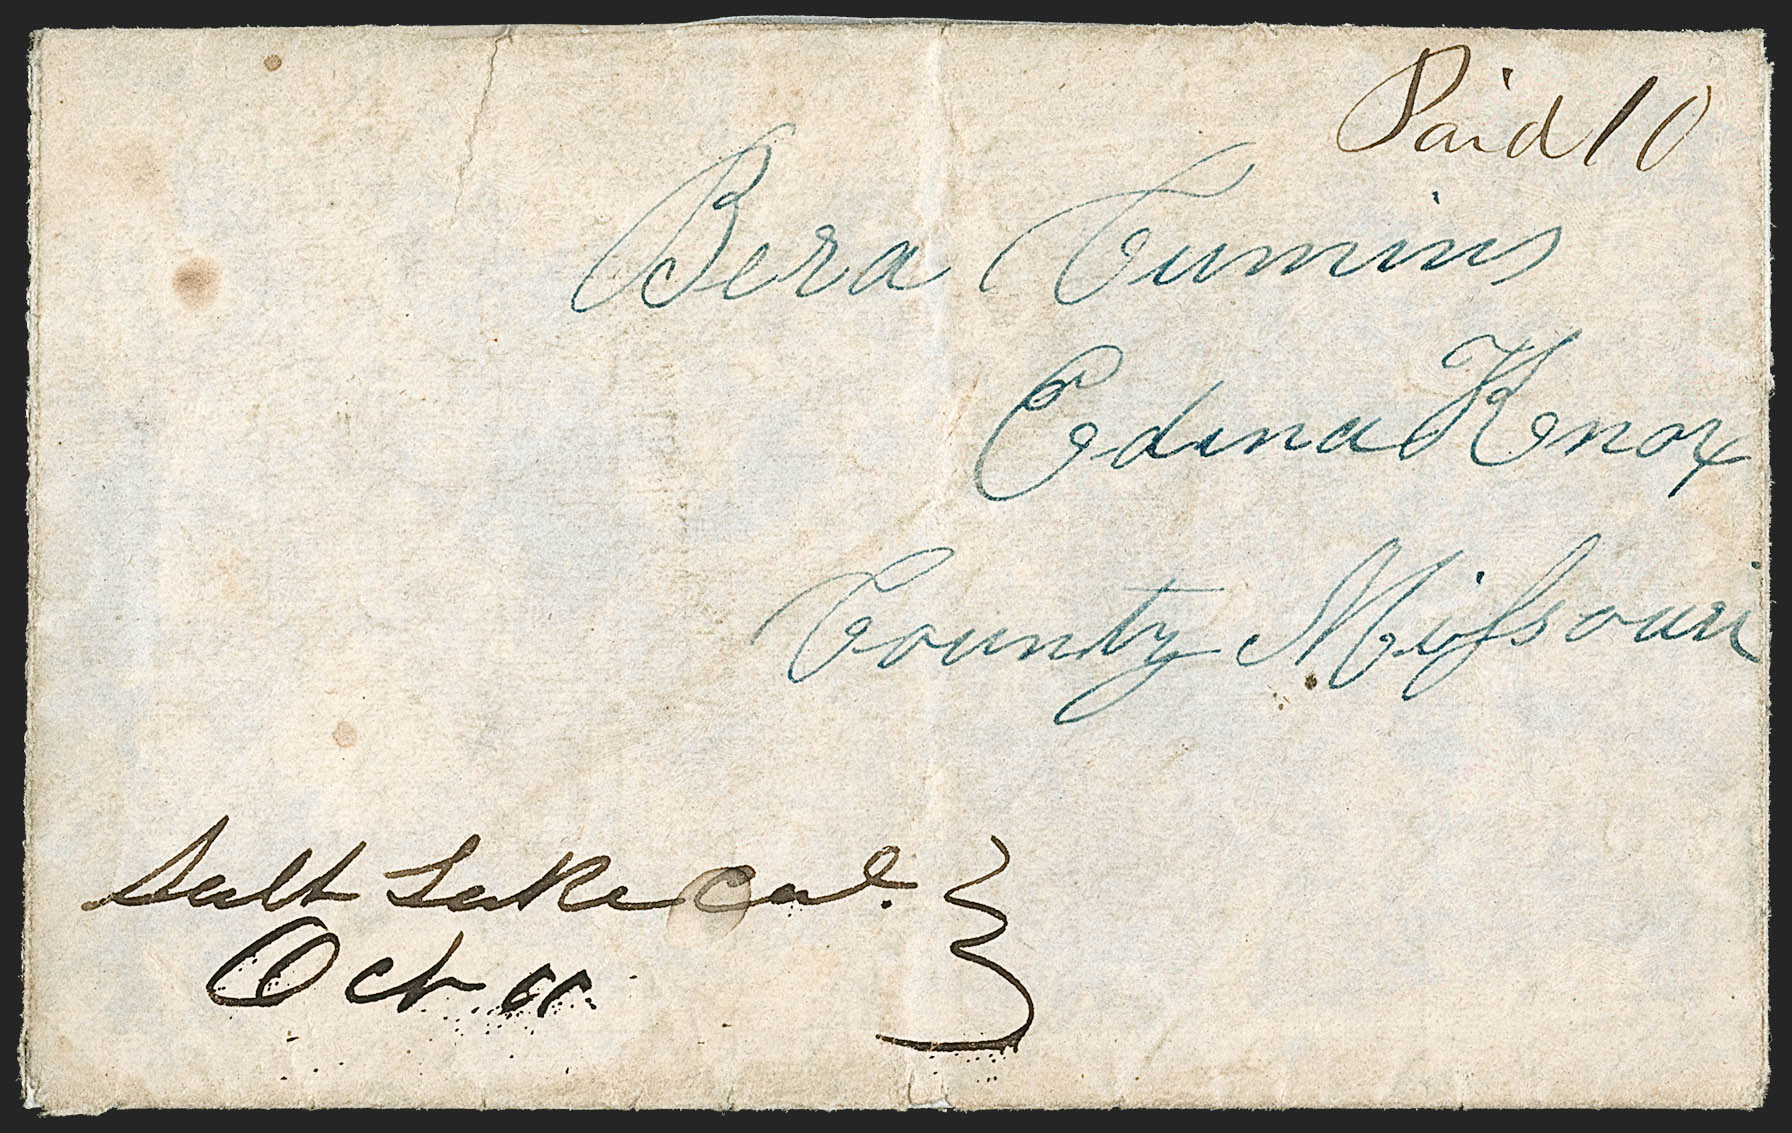 Paid 10
Bera Cumins
Edina Knox
County Missouri
Salt Lake Cal.
Oct 11